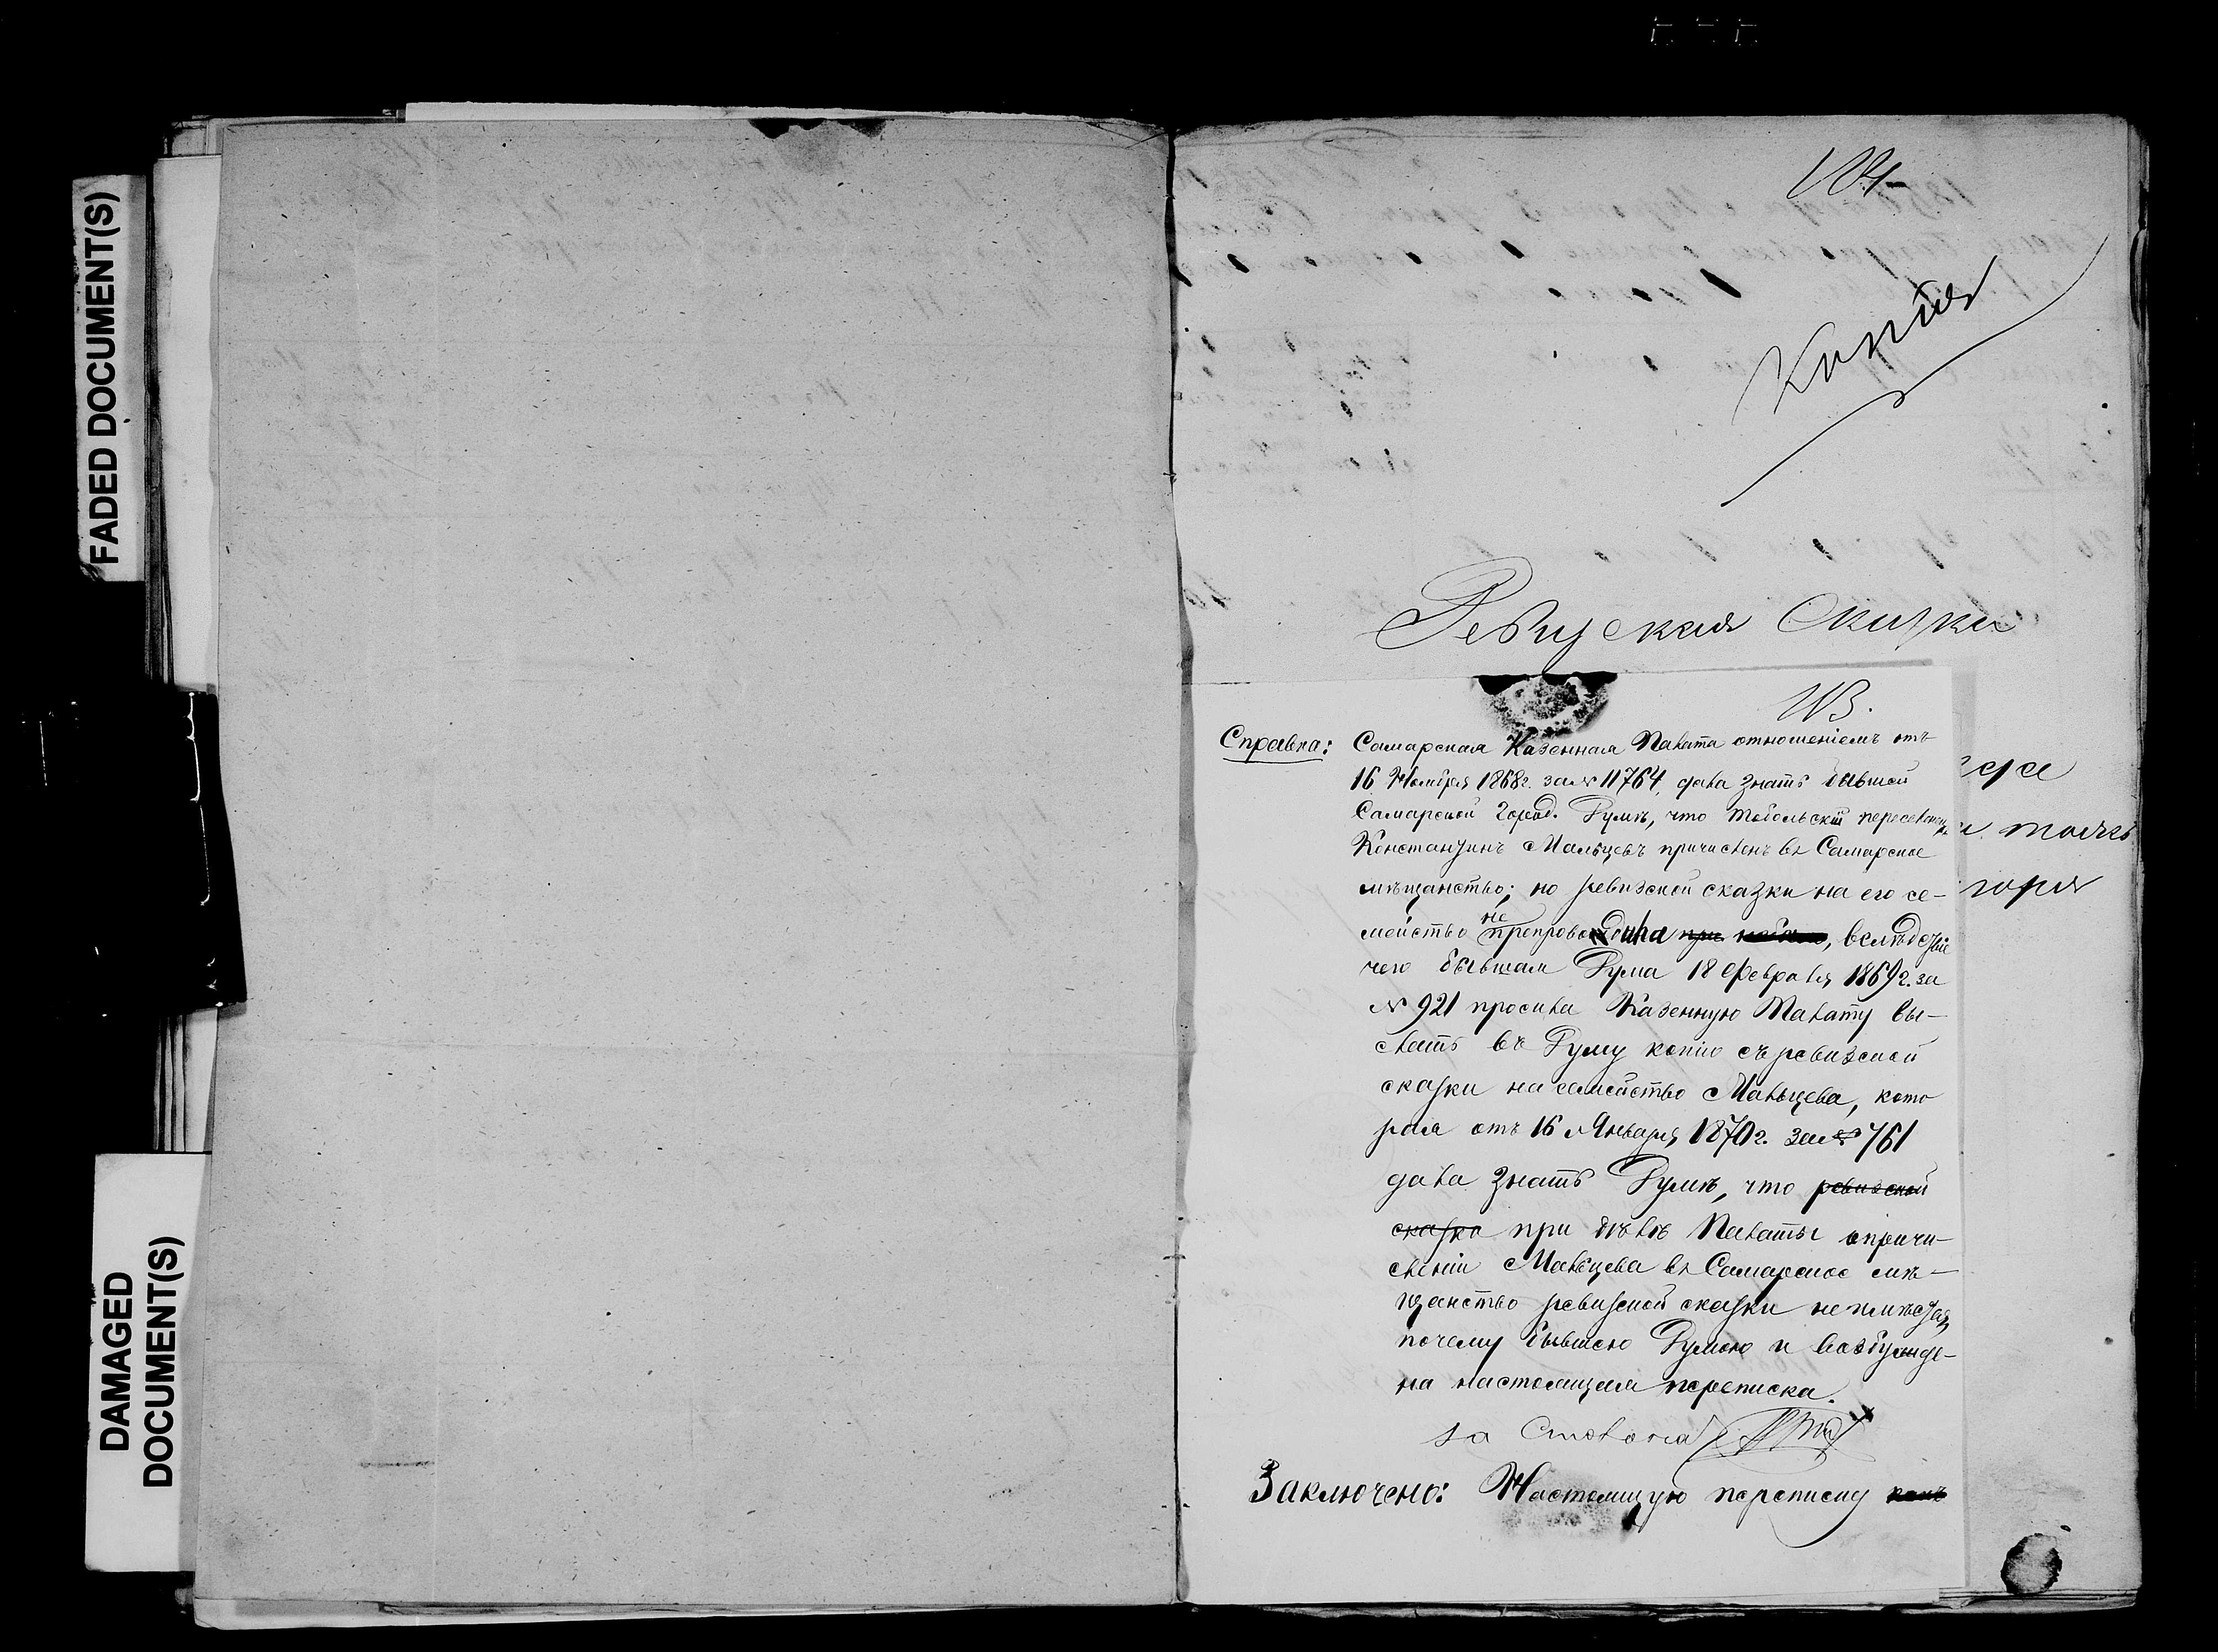 FADED DOCUMENT(S)
DAMAGED
DOCUMENT(S)
Копія
Ревизская Сказка
113.
Справка: Самарская Казенная Палата отношеніемъ отъ
16 Ноября 1868 г. за № 11764, дала знать бывшей
Самарской Город. Думѣ, что тобольскій переселенецъ
Константинъ Мальцевъ причисленъ въ Самарское
мѣщанство; но ревизской сказки на его се-
мейство не препроводила при, вслѣдствіе
чего бывшая Дума 18 Февраля 1869 г. за
№ 921 просила Казенную Палату вы-
слать въ Думу копію съ ревизской
сказки на семейство Мальцева, кото
рая отъ 16 Января 1870 г. за № 761
дала знать Думѣ, что ревизской
сказки при дѣлѣ Палаты о причи-
сленіи Мальцева въ Самарское мѣ-
щанство ревизской сказки не имѣется,
почему бывшею Думою и возбужде-
на настоящая переписка.
За Столонач
Заключено: Настоящую переписку